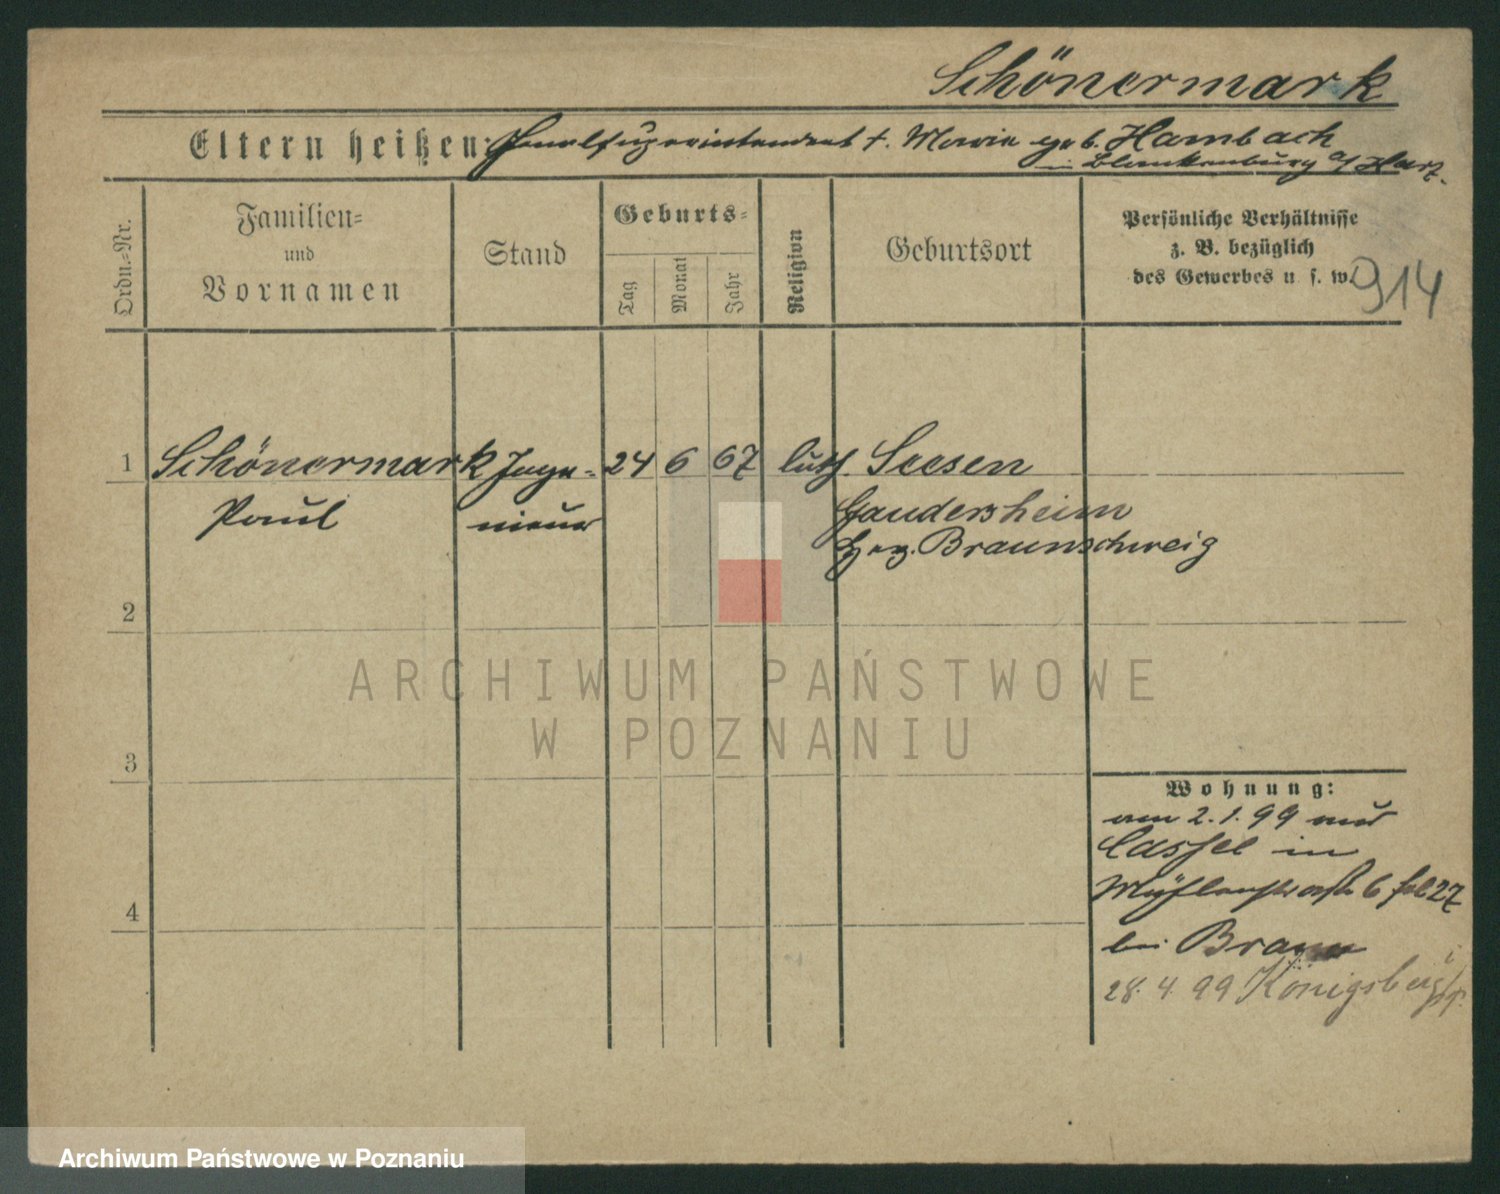 Schönermark
Eltern heißen: Generalsuperintendent †. Marie geb. Hambach
in Blankenburg a/ Harz.
Ordn.=Nr.
Familien=
und
Vornamen
Stand
Geburts=
Tag
Monat
Jahr
Religion
Geburtsort
Persönliche Verhältnisse
z. B. bezüglich
des Gewerbes u. s. w.
914
1 Schönermark Inge= 24 6 67 luth. Seesen
Paul nieur Gandersheim
Hrz. Braunschweig
2
ARCHIWUM PAŃSTWOWE
W POZNANIU
3
Wohnung:
am 2.1.99 aus
Cassel in
Mühlenstraße 6 27
4
bei Braun
28.4.99 Königsberg
Archiwum Państwowe w Poznaniu